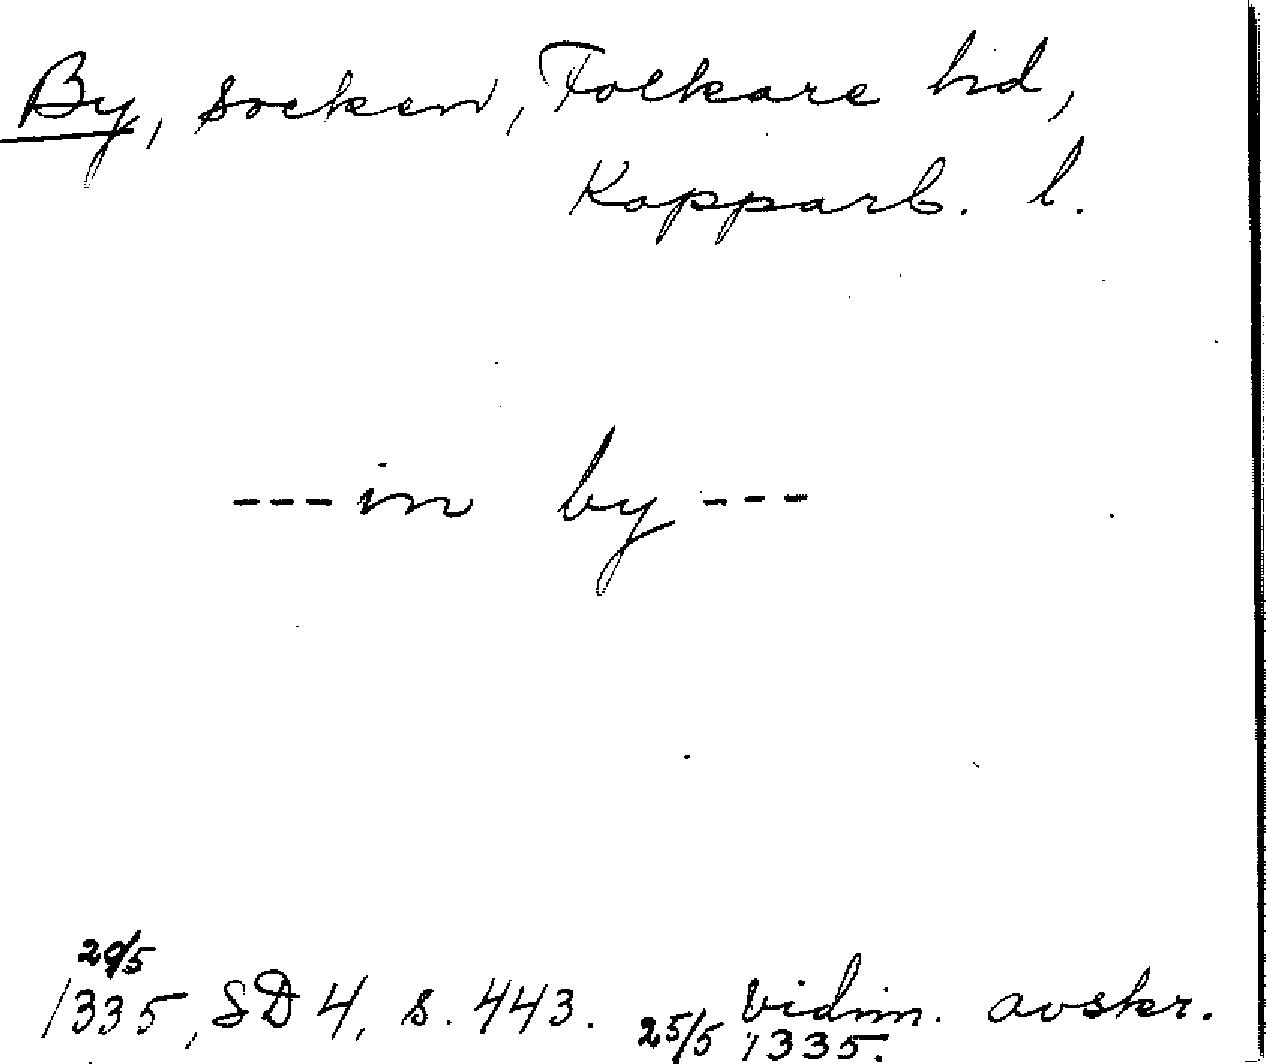 By, socken, Folkare hd,
Kopparb. l.
---in by---
20/5
1335, SD 4, s. 443. vidim. avskr.
25/5 1335.